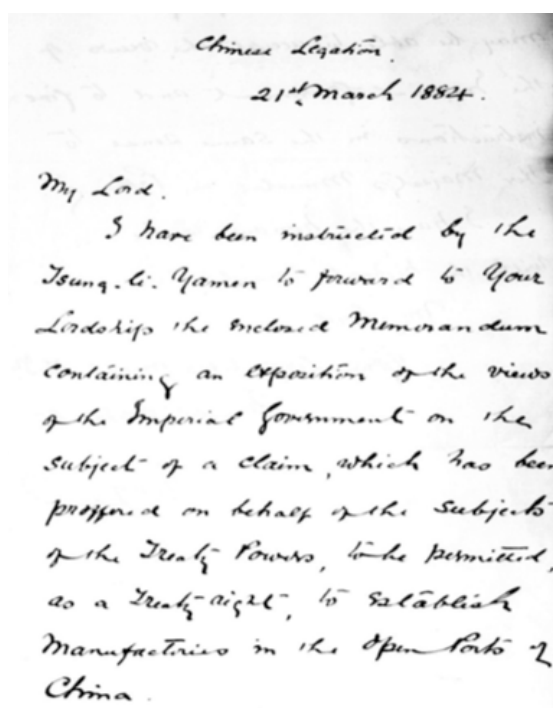 Chinese Legation.
21st March 1884.
My Lord.
I have been instructed by the
Tsung-li-Yamen to forward to Your
Lordship the enclosed Memorandum
containing an exposition of the views
of the Imperial Government on the
subject of a claim, which has been
proffered on behalf of the Subjects
of the Treaty Powers, to be permitted,
as a Treaty right, to establish
Manufactories in the Open Ports of
China.